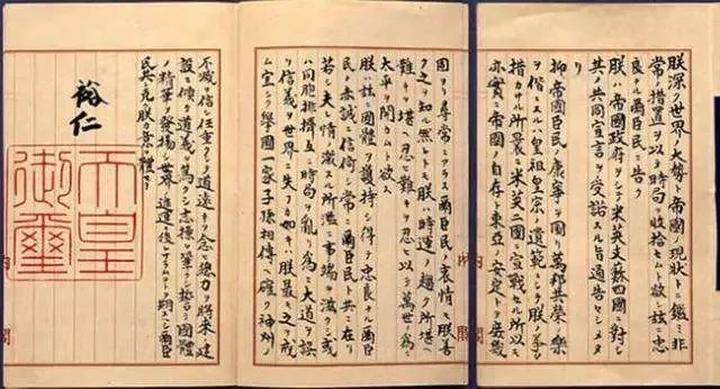 朕深ク世界ノ大勢ト帝國ノ現狀トニ鑑ミ非
常ノ措置ヲ以テ時局ヲ收拾セムト欲シ茲ニ忠
良ナル爾臣民ニ告ク
朕ハ帝國政府ヲシテ米英支蘇四國ニ對シ
其ノ共同宣言ヲ受諾スル旨通告セシメタ
リ
抑帝國臣民ノ康寧ヲ圖リ萬邦共榮ノ樂
ヲ偕ニスルハ皇祖皇宗ノ遺範ニシテ朕ノ拳々
措カサル所曩ニ米英二國ニ宣戰セル所以モ
亦實ニ帝國ノ自存ト東亞ノ安定トヲ庶幾
内閣
固ヨリ尋常ニアラス爾臣民ノ衷情モ朕善
ク之ヲ知ル然レトモ朕ハ時運ノ趨ク所堪ヘ
難キヲ堪ヘ忍ヒ難キヲ忍ヒ以テ萬世ノ爲ニ
太平ヲ開カムト欲ス
朕ハ茲ニ國體ヲ護持シ得テ忠良ナル爾臣
民ノ赤誠ニ信倚シ常ニ爾臣民ト共ニ在リ
若シ夫レ情ノ激スル所濫ニ事端ヲ滋クシ或
ハ同胞排擠互ニ時局ヲ亂リ爲ニ大道ヲ誤
リ信義ヲ世界ニ失フカ如キハ朕最モ之ヲ戒
ム宜シク擧國一家子孫相傳ヘ確ク神州ノ
内閣
不滅ヲ信シ任重クシテ道遠キヲ念ヒ總力ヲ將來ノ建
設ニ傾ケ道義ヲ篤クシ志操ヲ鞏クシ誓テ國體
ノ精華ヲ發揚シ世界ノ進運ニ後レサラムコトヲ期スヘシ爾臣
民其レ克ク朕カ意ヲ體セヨ
裕仁
天皇
御璽
内閣